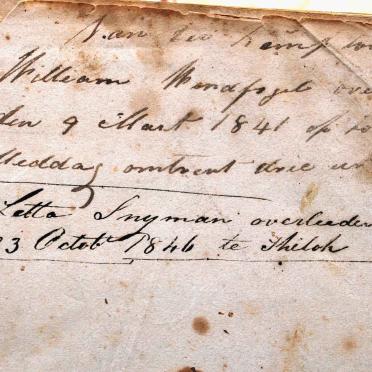 van der Kemp
William Windvogel over
den 9 Maart 1841 op
Meddag omtrent drie
Letta Snyman overleeden
23 Octobr 1846 te Shiloh